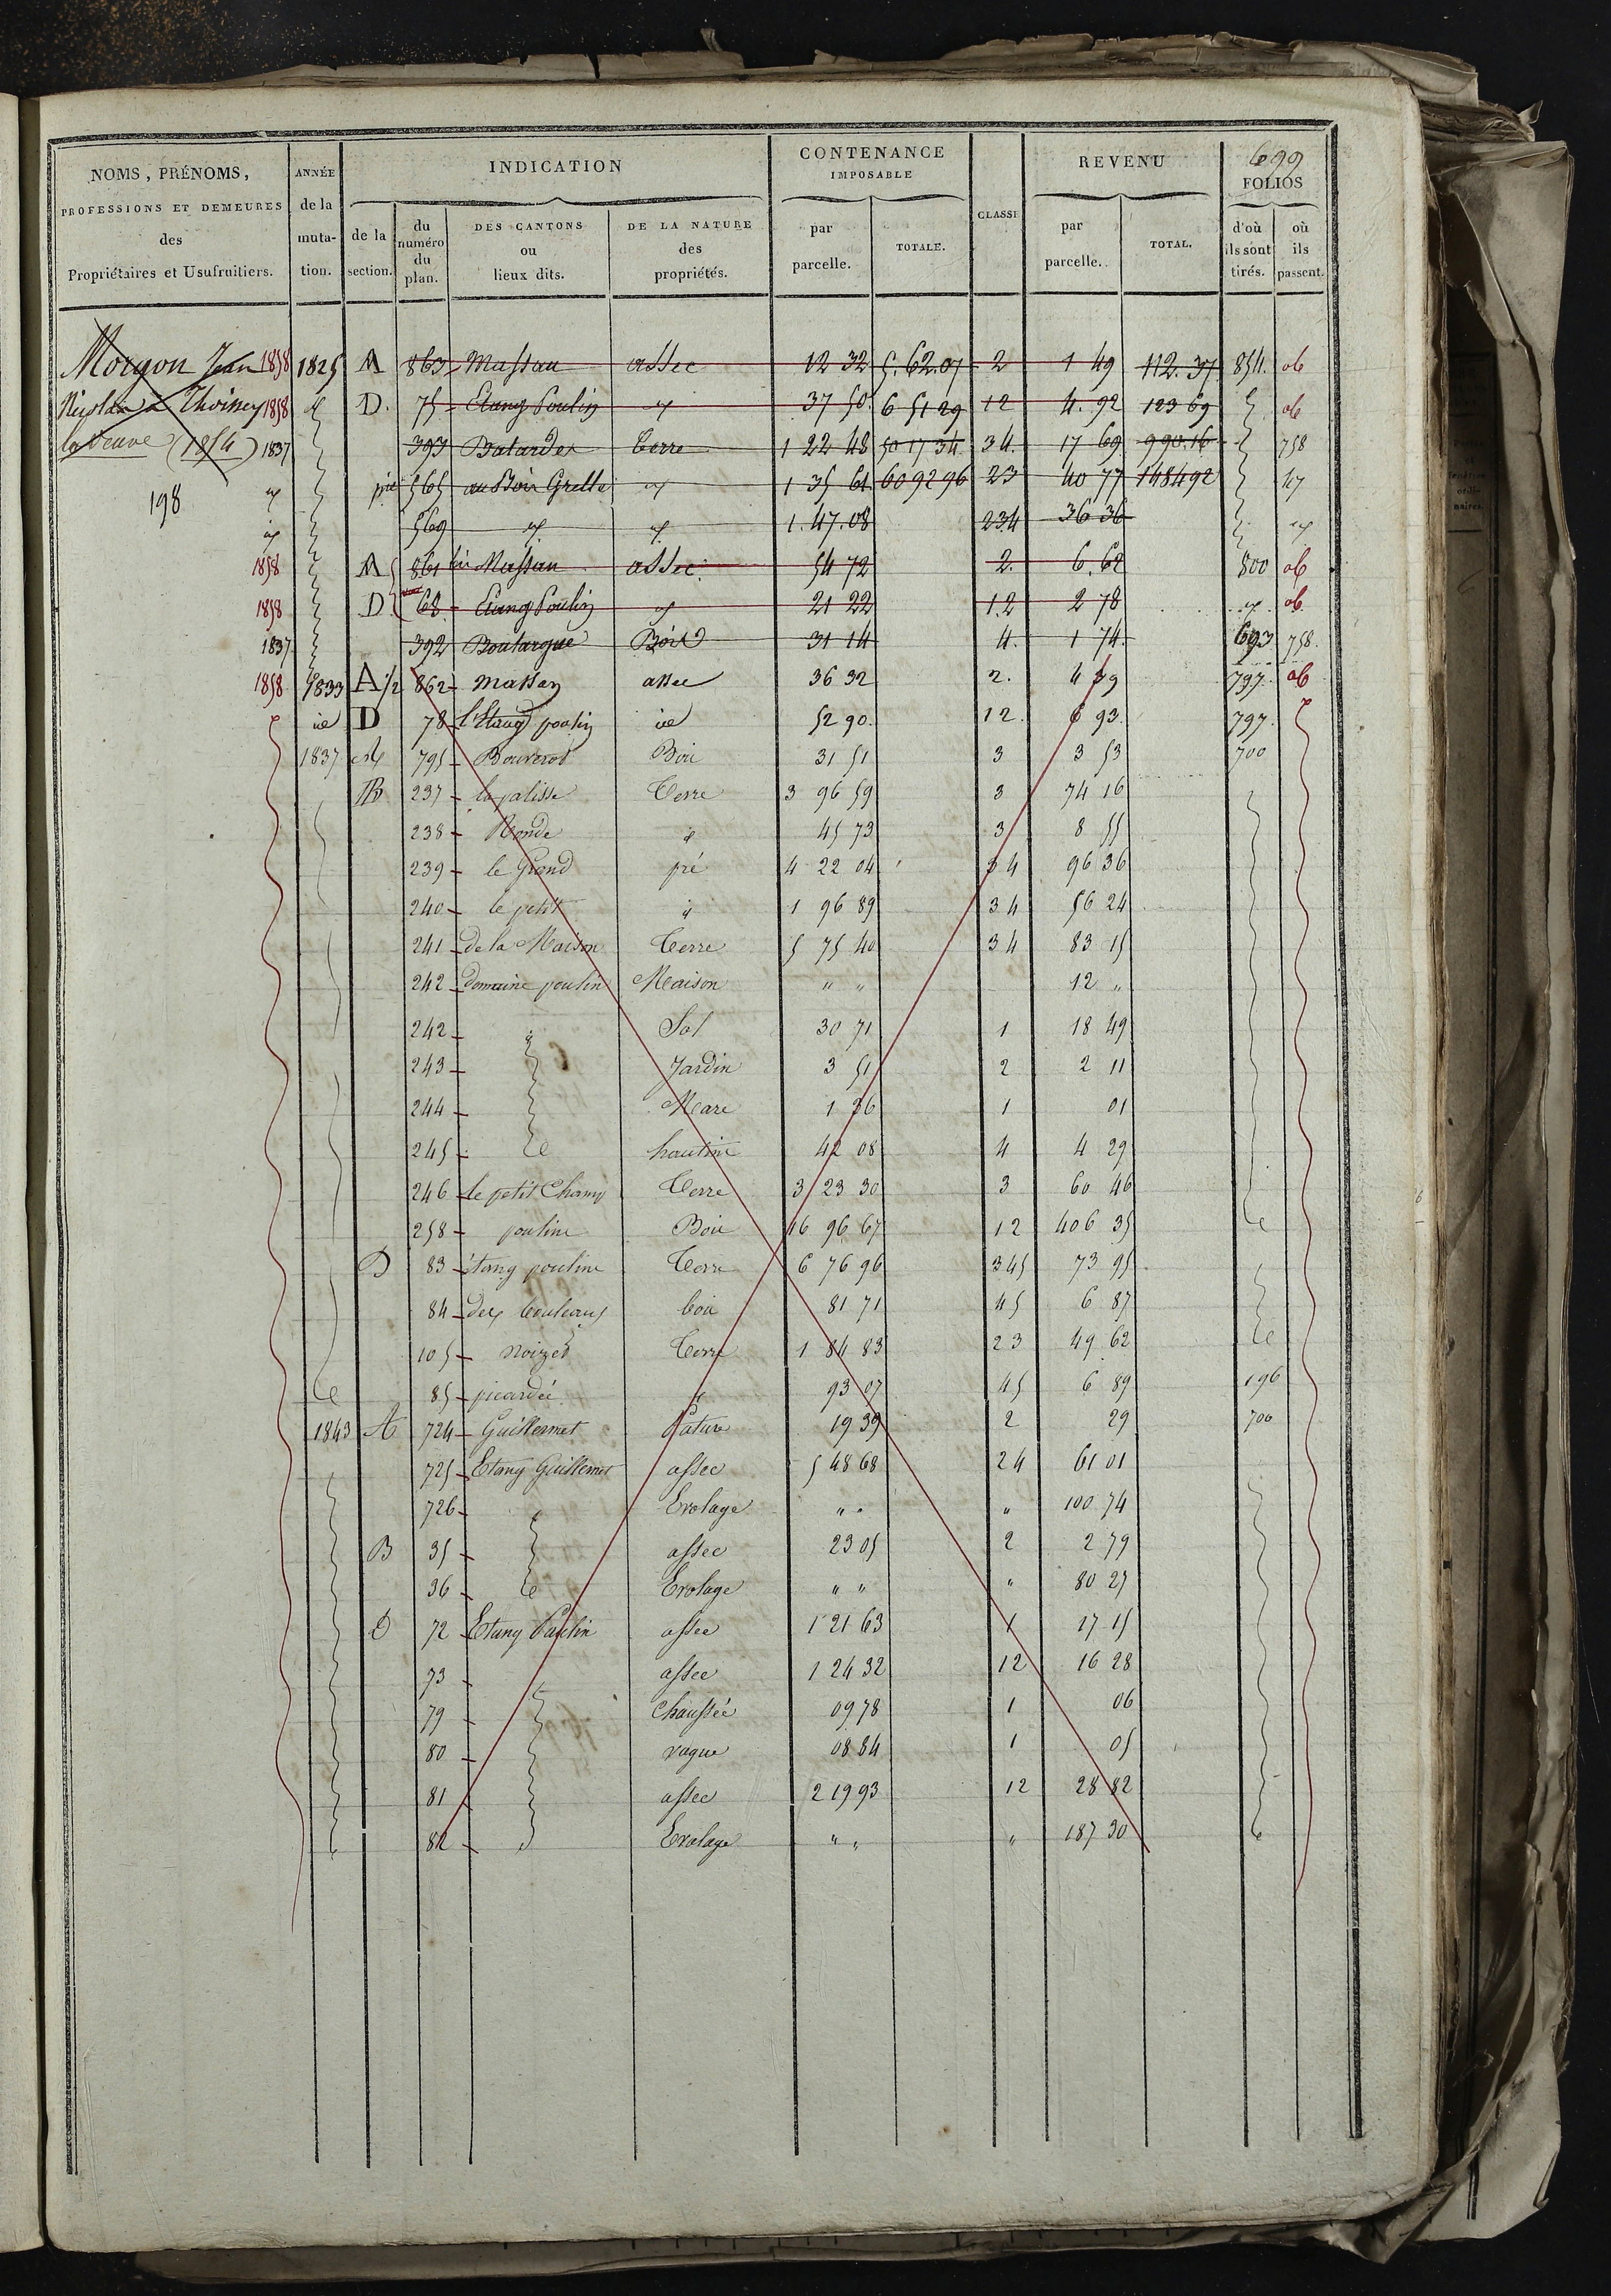 699
NOMS, PRÉNOMS, PROFESSIONS ET DEMEURES des Propriétaires et Usufruitiers.
ANNÉE de la muta-tion.
INDICATION
de la section.
du numéro du plan.
DES CANTONS ou lieux dits.
DE LA NATURE des propriétés.
CONTENANCE IMPOSABLE
par parcelle.
TOTALE.
CLASSE
REVENU
par parcelle.
TOTAL.
FOLIOS
d'où ils sont tirés.
où ils passent.
Morgon Jean 1858 1825 A 863 Massan assec 12 32 5.62.07 2 1 49 112.37 854 ob
Nicolas à Thoissey 1858 D. 75 Etang Poulin 37 50 6 51 29 12 4.92 123 69 ob
la Veuve (1854) 1837 393 Batardes Terre 1 22 48 50 17 34 34. 17 69 990.16 758
198 pie 565 au Bois Grelle 1 35 61 60 92 96 23 40 77 1484 92
569 1.47.08 234 36 36
1858 A 861 Massan assec 54 72 2. 6.62 800 ob
1858 D 68 Etang Poulin 21 22 1.2 2 78 ob
1837 392 Boutargue Bois 31 14 4. 1 74 693 758
1858 1833 A 1/2 862 massan assec 36 32 2. 4 39 797 ob
id D 78 l'Etang poulin id 52 90 12 6 93 797
1837 A 795 Bouverot Bois 31 51 3 3 53 700
B 237 la palisse Terre 3 96 59 3 74 16
238 Ronde 45 73 3 8 55
239 le Grand pré 4 22 04 34 96 36
240 le petit 1 96 89 34 56 24
241 de la Maison Terre 5 75 40 34 83 15
242 domaine poulin Maison " " 12 "
242 Sol 30 71 1 18 49
243 Jardin 3 51 2 2 11
244 Mare 1 36 1 01
245 hautine 42 08 4 4 29
246 le petit Champ Terre 3 23 30 3 60 46
258 pouline Bois 16 96 67 12 406 35
D 83 étang pouline Terre 6 76 96 345 73 95
84 des bouleaux bois 81 71 45 6 87
105 Noizet Terre 1 84 83 23 49 62
85 picardée 93 07 45 6 89 196
1843 A 724 Guillermet Pature 19 39 2 29 700
725 Etang Guillemet assec 5 48 68 24 61 01
726 Evolage " " " 100 74
B 35 assec 23 05 2 2 79
36 Evolage " " " 80 27
D 72 Etang Paulin assec 1 21 63 1 17 15
73 assec 1 24 32 12 16 28
79 Chaussée 09 78 1 06
80 vague 08 84 1 05
81 assec 2 19 93 12 28 82
82 Evolage " " " 187 30